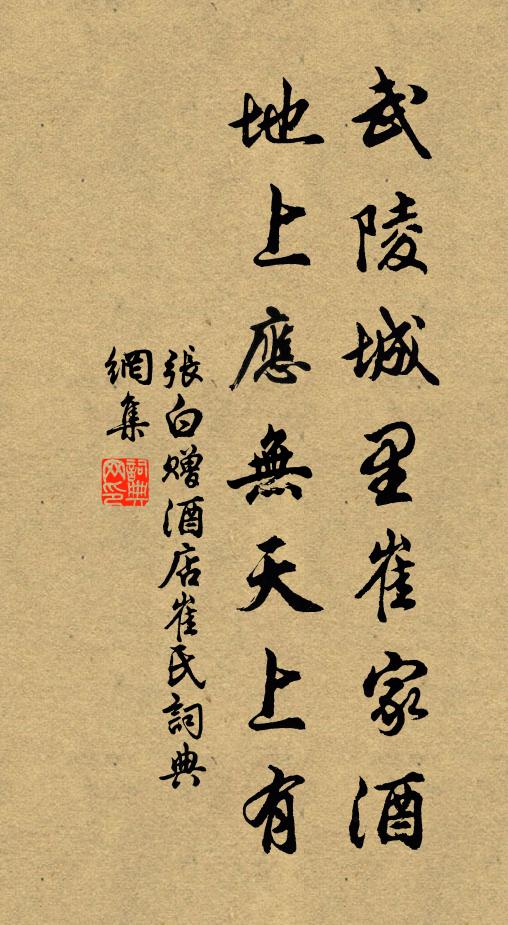 武陵城里崔家酒
地上應無天上有
張白贈酒店崔氏詞典
網集
詞典網印